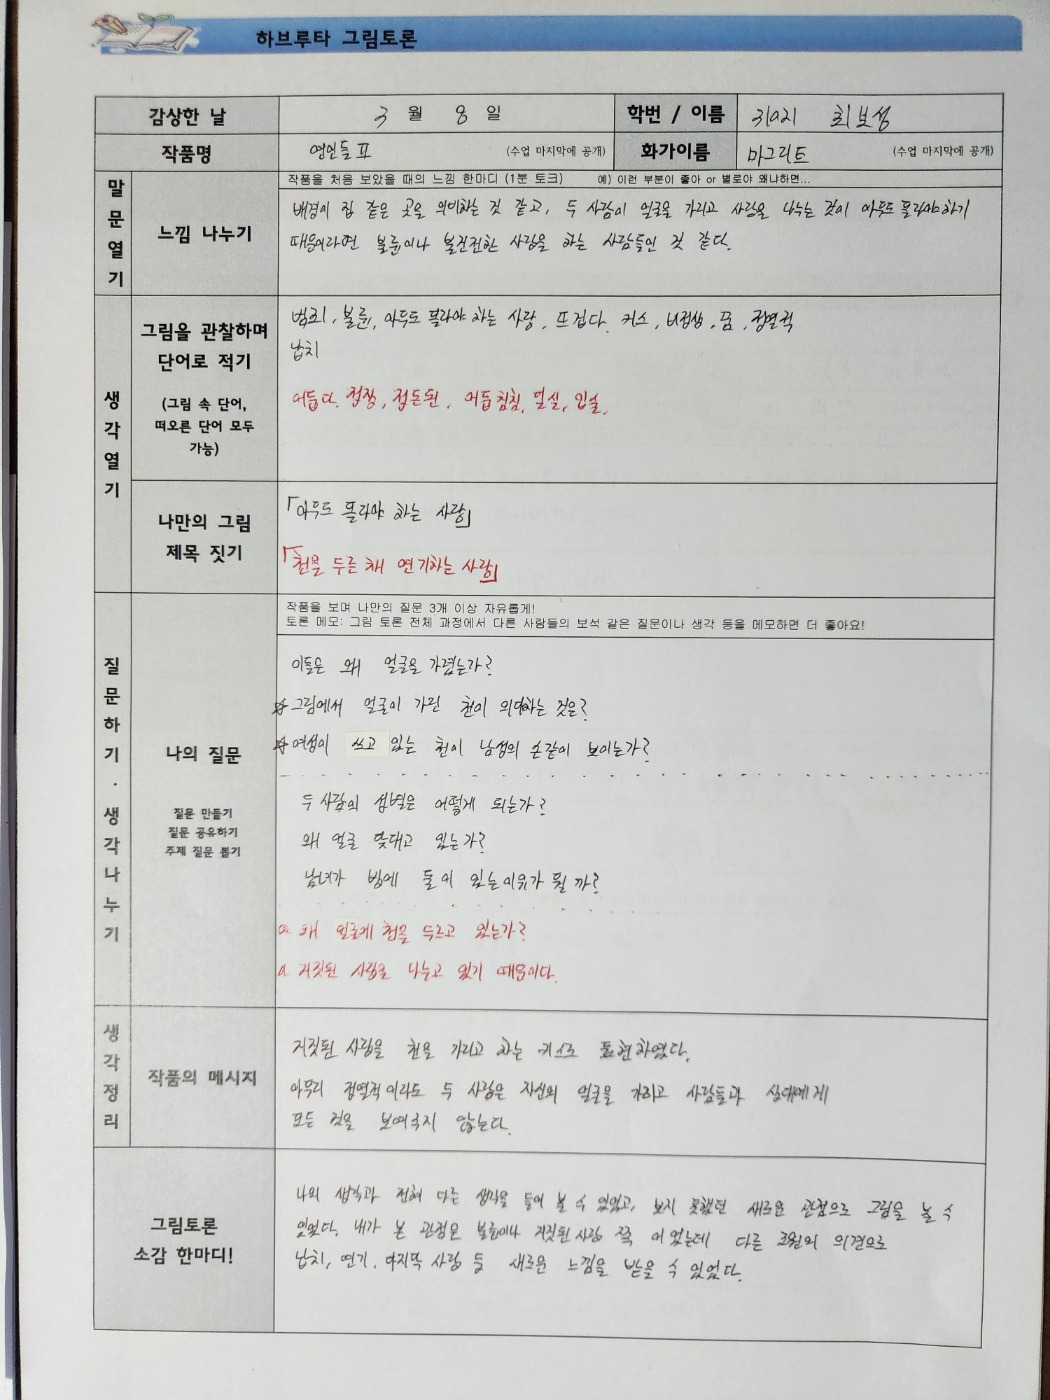 하브루타 그림토론
감상한 날
3 월 8 일
학번 / 이름
31021 최보성
작품명
연인들 Ⅱ
(수업 마지막에 공개)
화가이름
마그리트
(수업 마지막에 공개)
말문열기
느낌 나누기
작품을 처음 보았을 때의 느낌 한마디 (1분 토크) 예) 이런 부분이 좋아 or 별로야 왜냐하면...
배경이 집 같은 곳을 의미하는 것 같고, 두 사람이 얼굴을 가리고 사랑을 나누는 것이 아무도 몰라야하기
때문이라면 불륜이나 불건전한 사랑을 하는 사람들인 것 같다.
생각열기
그림을 관찰하며
단어로 적기
(그림 속 단어,
떠오른 단어 모두
가능)
범죄, 불륜, 아무도 몰라야 하는 사랑, 뜨겁다. 키스, 비정상, 정열적
납치
어둡다. 정장, 어둠침침, 밀실, 입술.
나만의 그림
제목 짓기
「아무도 몰라야 하는 사랑」
「천을 두른 채 연기하는 사랑」
질문하기 · 생각나누기
작품을 보며 나만의 질문 3개 이상 자유롭게!
토론 메모: 그림 토론 전체 과정에서 다른 사람들의 보석 같은 질문이나 생각 등을 메모하면 더 좋아요!
나의 질문
질문 만들기
질문 공유하기
주제 질문 뽑기
이들은 왜 얼굴을 가렸는가?
☆ 그림에서 얼굴이 가린 천이 의미하는 것은?
☆ 여성이 쓰고 있는 천이 남성의 손같이 보이는가?
두 사람의 성별은 어떻게 되는가?
왜 얼굴 맞대고 있는가?
남녀가 방에 둘이 있는 이유가 뭘까?
Q 왜 얼굴에 천을 두르고 있는가?
a 거짓된 사랑을 나누고 있기 때문이다.
생각정리
작품의 메시지
거짓된 사랑을 천을 가리고 하는 키스로 표현하였다.
아무리 정열적이라도 두 사람은 자신의 얼굴을 가리고 사람들과 상대에게
모든 것을 보여주지 않는다.
그림토론
소감 한마디!
나의 생각과 전혀 다른 생각을 들어 볼 수 있었고, 보지 못했던 새로운 관점으로 그림을 볼 수
있었다. 내가 본 관점은 불륜이나 거짓된 사랑 쪽 이었는데 다른 조원의 의견으로
납치, 연기, 마지막 사랑 등 새로운 느낌을 받을 수 있었다.